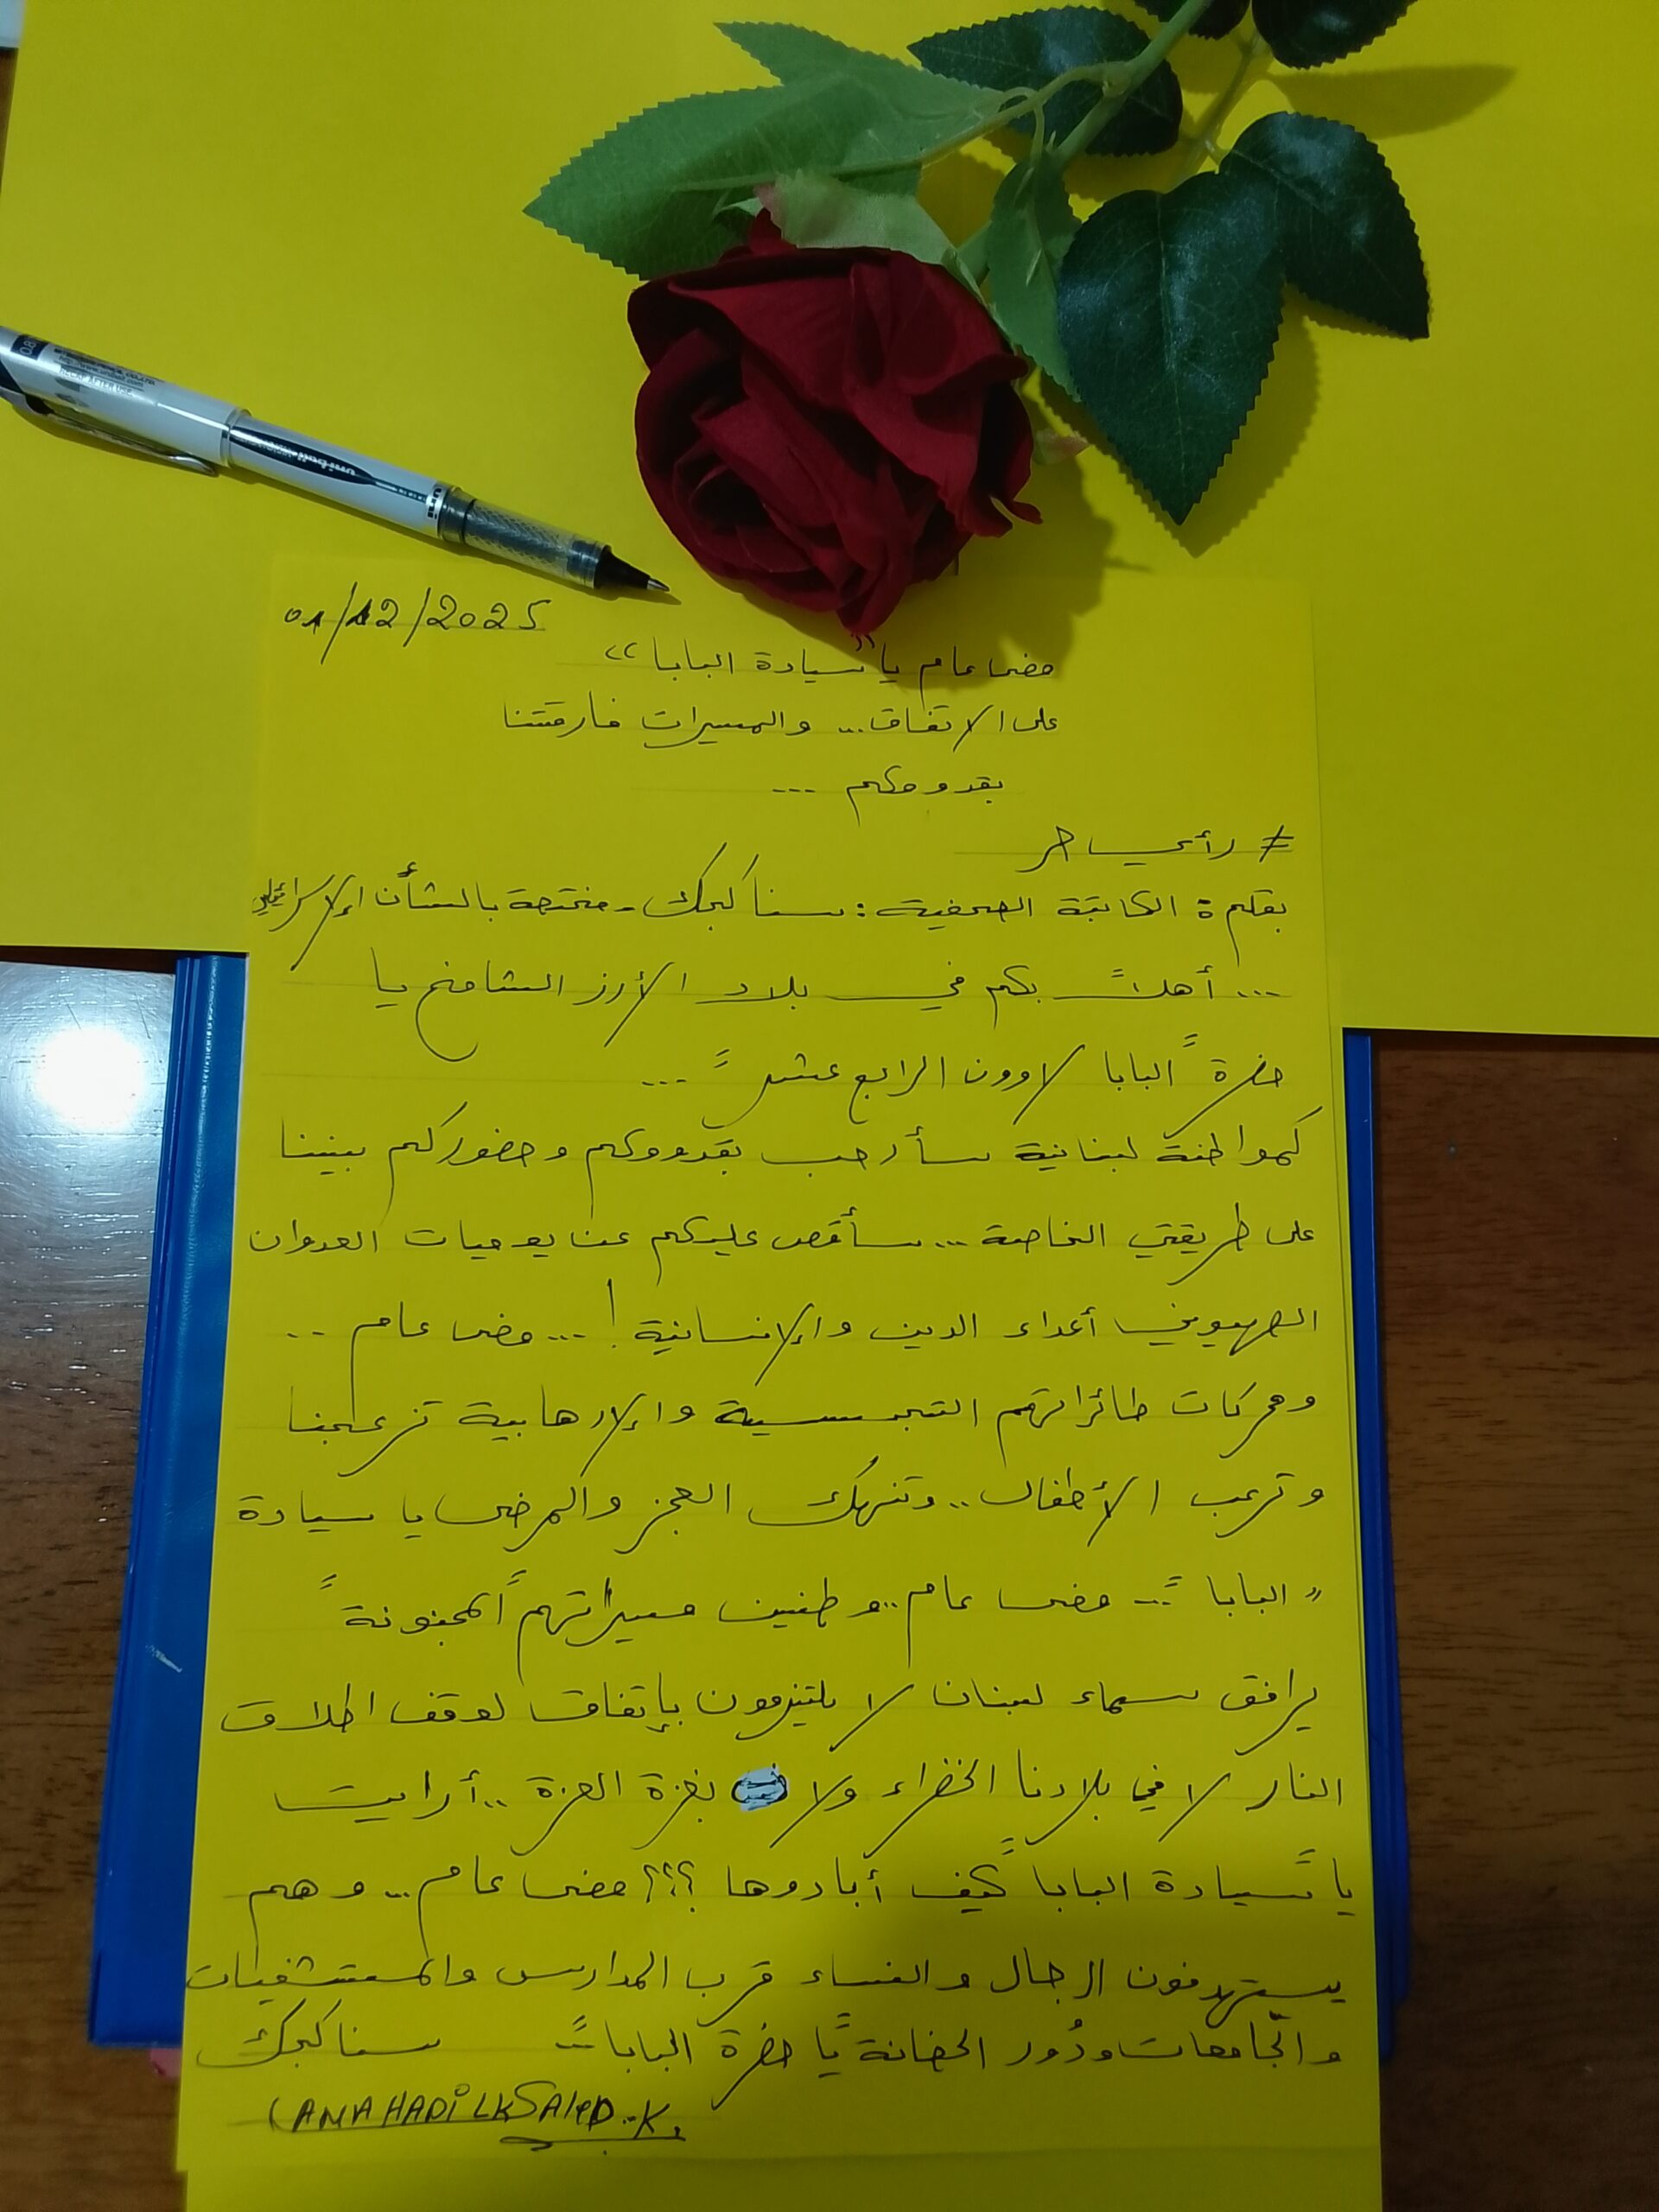 01/12/2025
مضى عام يا "سيادة البابا"
على الاتفاق... والمسيرات فارقتنا
بقدومكم ...
# رأي حر
بقلم: الكاتبة الصحفية: سنا كجك - مختصة بالشأن الإسرائيلي
... أهلاً بكم في بلاد الأرز الشامخ يا
حضرة "البابا لاوون الرابع عشر" ...
كمواطنة لبنانية سأرحب بقدومكم وحضوركم بيننا
على طريقتي الخاصة ... سأقص عليكم عن يوميات العدوان
الصهيوني أعداء الدين والإنسانية! ... مضى عام ..
ومحركات طائراتهم التجسسية والإرهابية تزعجنا
وترعب الأطفال .. وتنهك العجز والمرضى يا سيادة
"البابا" ... مضى عام .. وطنين مسيراتهم "المجنونة"
يرافق سماء لبنان لا يلتزمون بإتفاق لوقف اطلاق
النار لا في بلادنا الخضراء ولا بغزة العزة .. أرايت
يا "سيادة البابا" كيف أبادوها ؟؟؟ مضى عام .. وهم
يستهدفون الرجال والنساء قرب المدارس والمستشفيات
والجامعات ودُور الحضانة "يا حضرة البابا" سنا كجك
uni
uni-ball
0.8